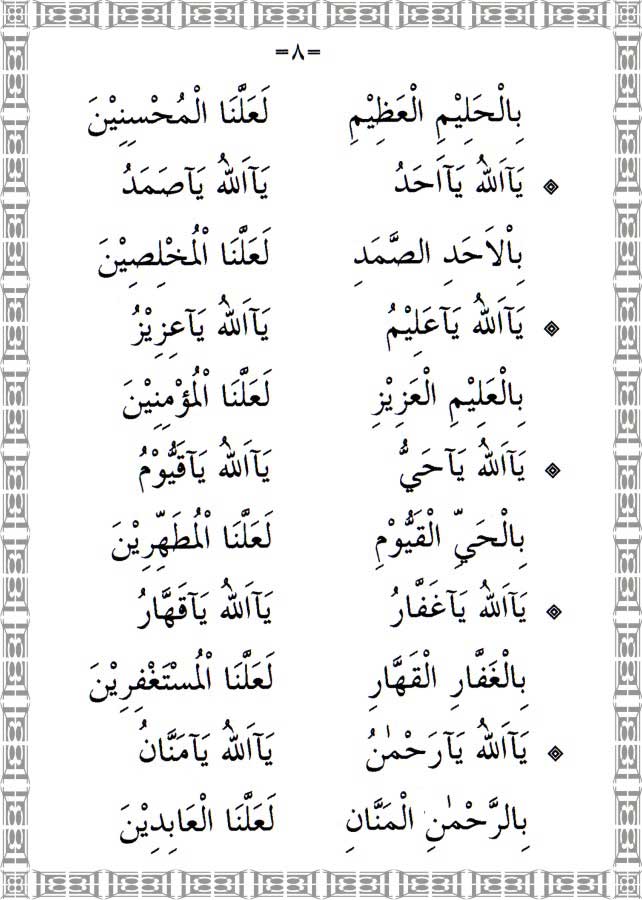 =٨=
بِالْحَلِيْمِ الْعَظِيْمِ لَعَلَّنَا الْمُحْسِنِيْنَ
يَآاَللهُ يَآاَحَدُ يَآاَللهُ يَآصَمَدُ
بِاْلاَحَدِ الصَّمَدِ لَعَلَّنَا الْمُخْلِصِيْنَ
يَآاَللهُ يَآعَلِيْمُ يَآاَللهُ يَآعِزِيْزُ
بِالْعَلِيْمِ الْعَزِيْزِ لَعَلَّنَا الْمُؤْمِنِيْنَ
يَآاَللهُ يَآحَيُّ يَآاَللهُ يَآقَيُّوْمُ
بِالْحَيِّ الْقَيُّوْمِ لَعَلَّنَا الْمُطَهِّرِيْنَ
يَآاَللهُ يَآغَفَّارُ يَآاَللهُ يَآقَهَّارُ
بِالْغَفَّارِ الْقَهَّارِ لَعَلَّنَا الْمُسْتَغْفِرِيْنَ
يَآاَللهُ يَآرَحْمٰنُ يَآاَللهُ يَآمَنَّانُ
بِالرَّحْمٰنِ الْمَنَّانِ لَعَلَّنَا الْعَابِدِيْنَ